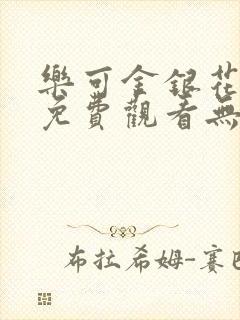 樂可金銀花
免費觀看無
布拉希姆-賽巴